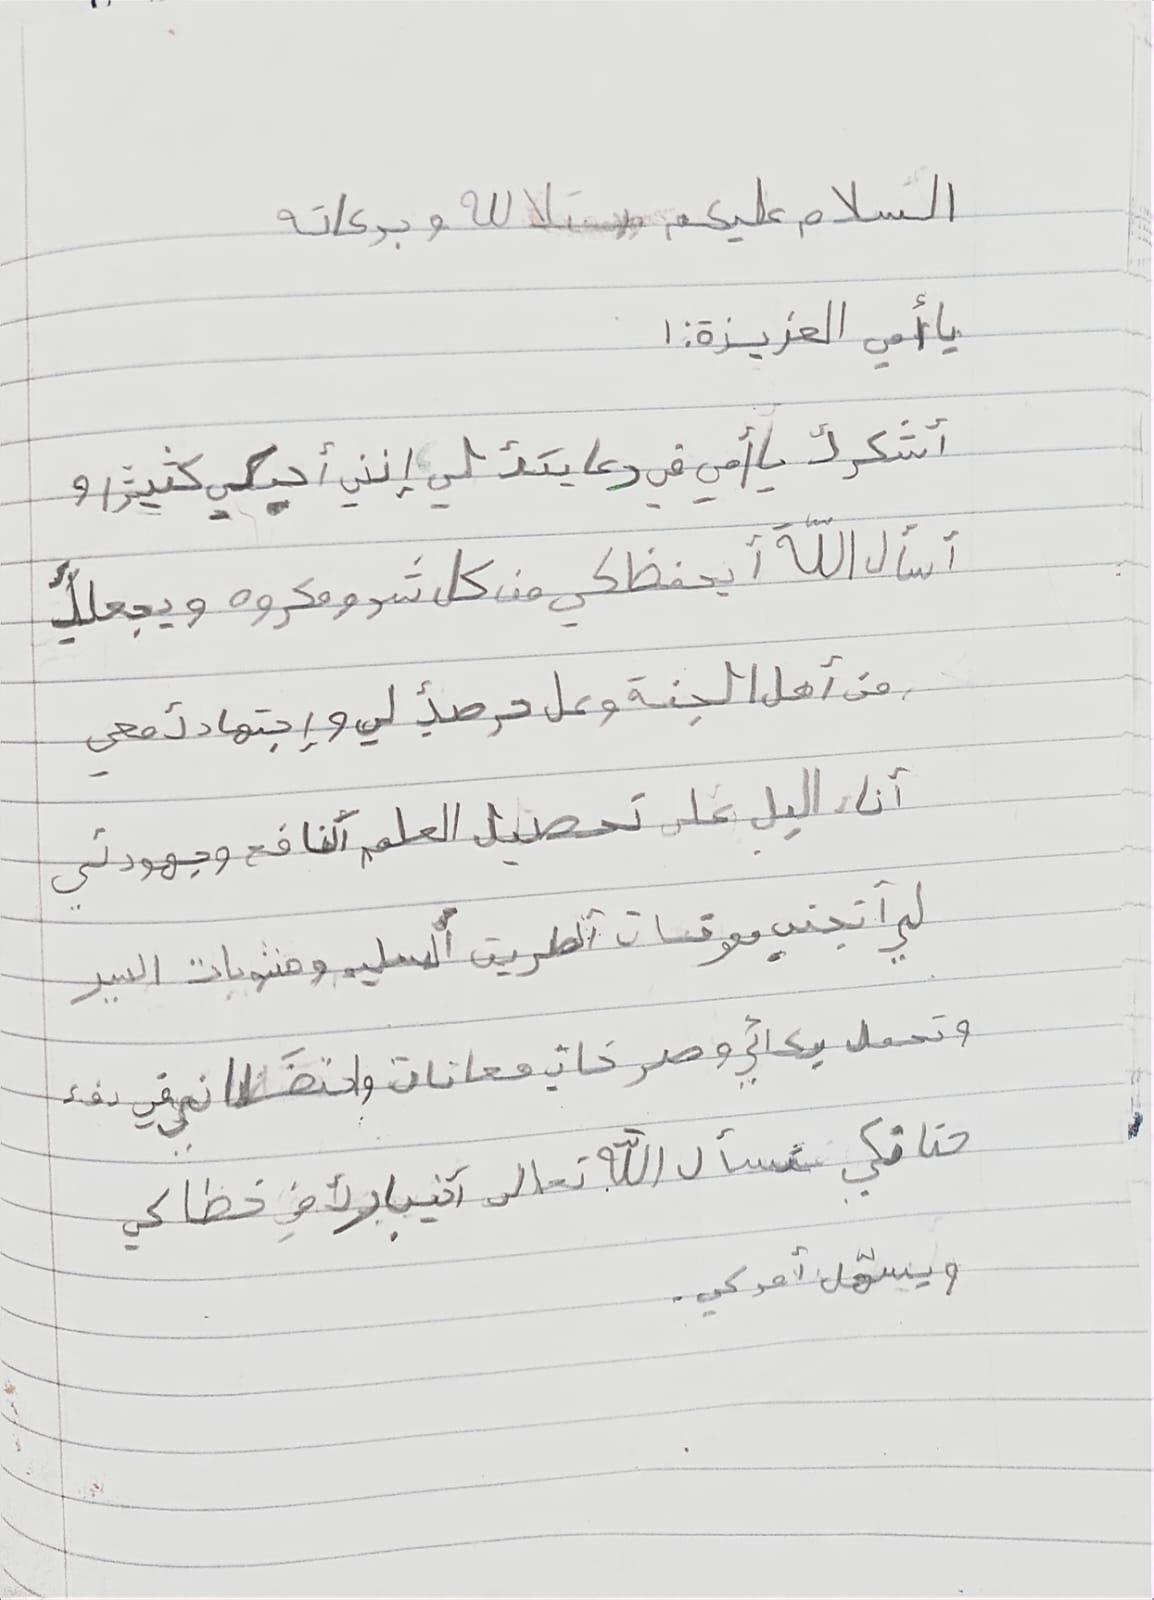 السلام عليكم الله وبركاته
يا أمي العزيزة:ا
أشكرك يا أمي في رعايتك لي إنني أحبكي كثيرًا و
أسأل اللّه أ يحفظكي من كل شر ومكروه ويجعلكِ
من أهل الجنة وعل حرصكِ لي وإجتهادك معي
أناء اليل على تحصيل العلم ألنافع وجهودكي
لي أتجنب موقسات ألطريق ألسليم ومنثوبات السير
وتحمل بكائي وصرخاتي معانات في دفء
حنانكي نسأل اللّه تعالى أنيبارك في خطاكي
ويسهّل أمركي.